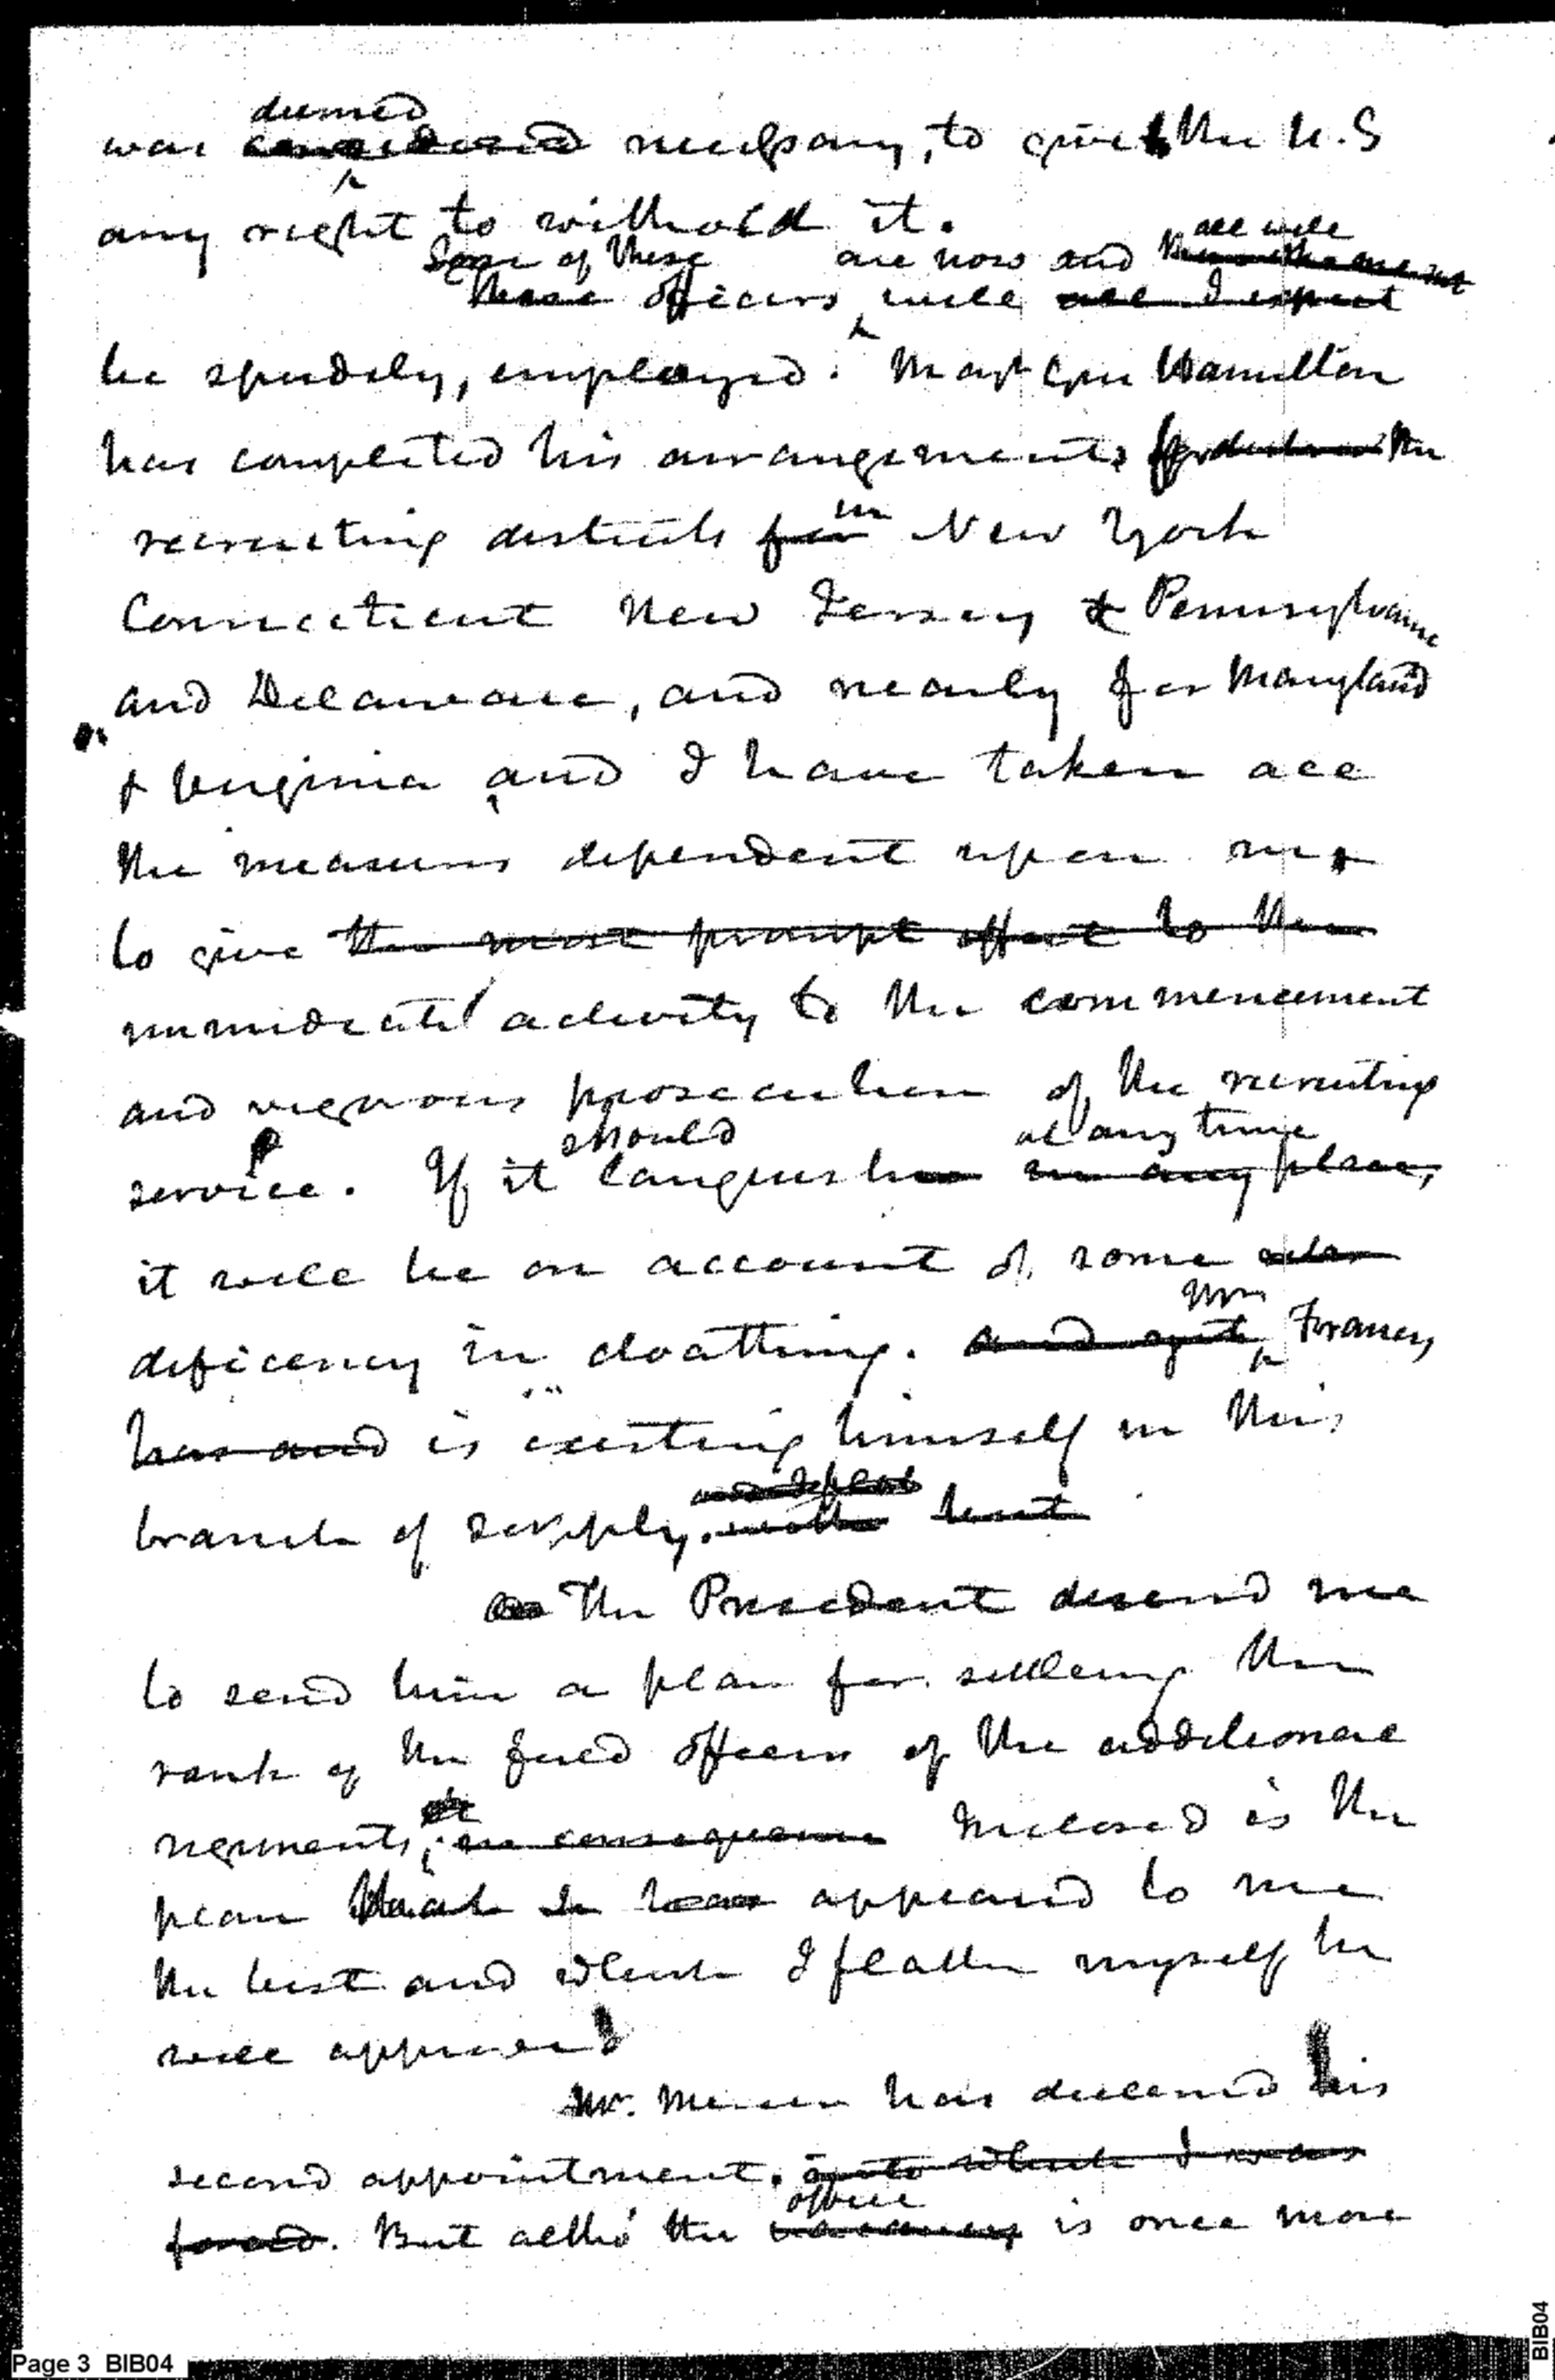 deemed
was considered necessary, to give the U.S
any right to withold it.
Some of these are now and all will
These officers, will all I expect
be speedely, employed. Majr Gen Hamilton
has completed his arrangements for the
recruiting districts for in New York
Connecticut New Jersey & Pennsylvania
and Delaware, and nearly for Maryland
& Virginia and I have taken all
the measures dependent upon me
to give the most prompt effect to the
immediate activity to the commencement
and vigorous prosecution of the recruiting
should at any time
service. If it languishes in any place,
it will be on account of some
Mr
deficency in cloathing. and yet Francis
has and is exerting himself in this
branch of supply. but
The President desired me
to send him a plan for settling the
rank of the field officers of the additional
regiments, in consequence Inclosed is the
plan that has appeared to me
the best and which I flatter myself he
will approve
Mr. Mercer has declined his
second appointment. into which I was
office
forced. But altho' the vacancy is once more
Page 3 BIB04
BIB04